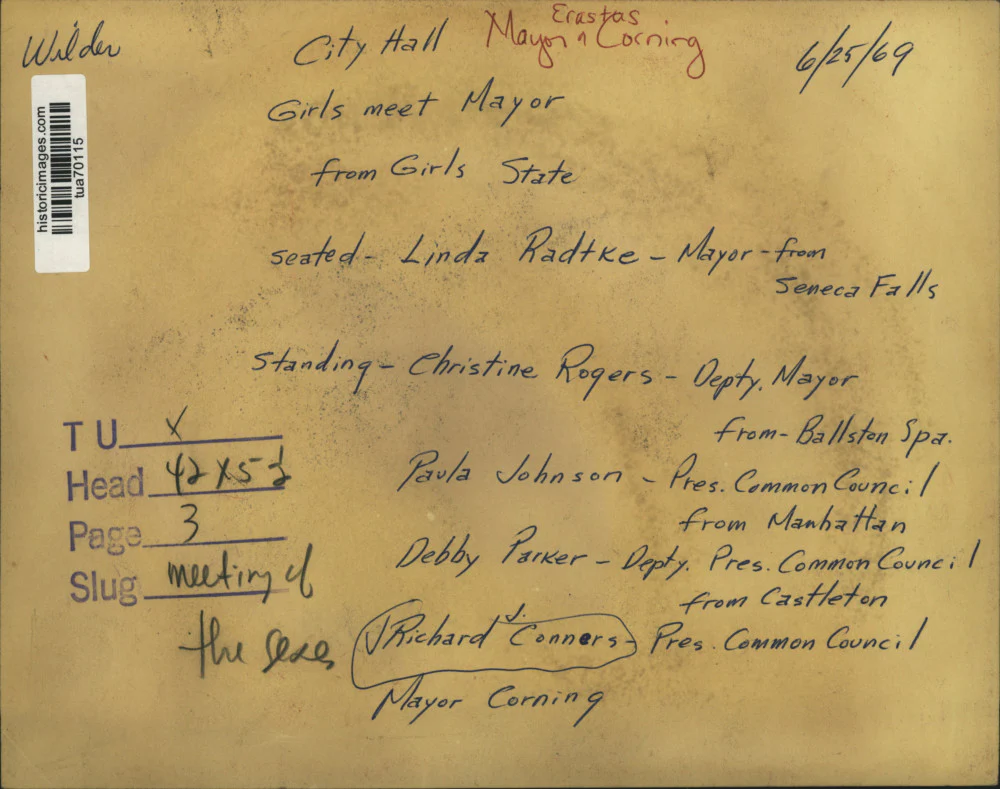 Wilder
City Hall
Erastus
Mayor Corning
6/25/69
historicimages.com
tua70115
Girls meet Mayor
from Girls State
seated - Linda Radtke - Mayor - from
Seneca Falls
Standing - Christine Rogers - Depty. Mayor
from - Ballston Spa.
Paula Johnson - Pres. Common Council
from Manhattan
Debby Parker - Depty. Pres. Common Council
from Castleton
Richard J. Conners - Pres. Common Council
Mayor Corning
T U X
Head
Page 3
Slug meeting of
the